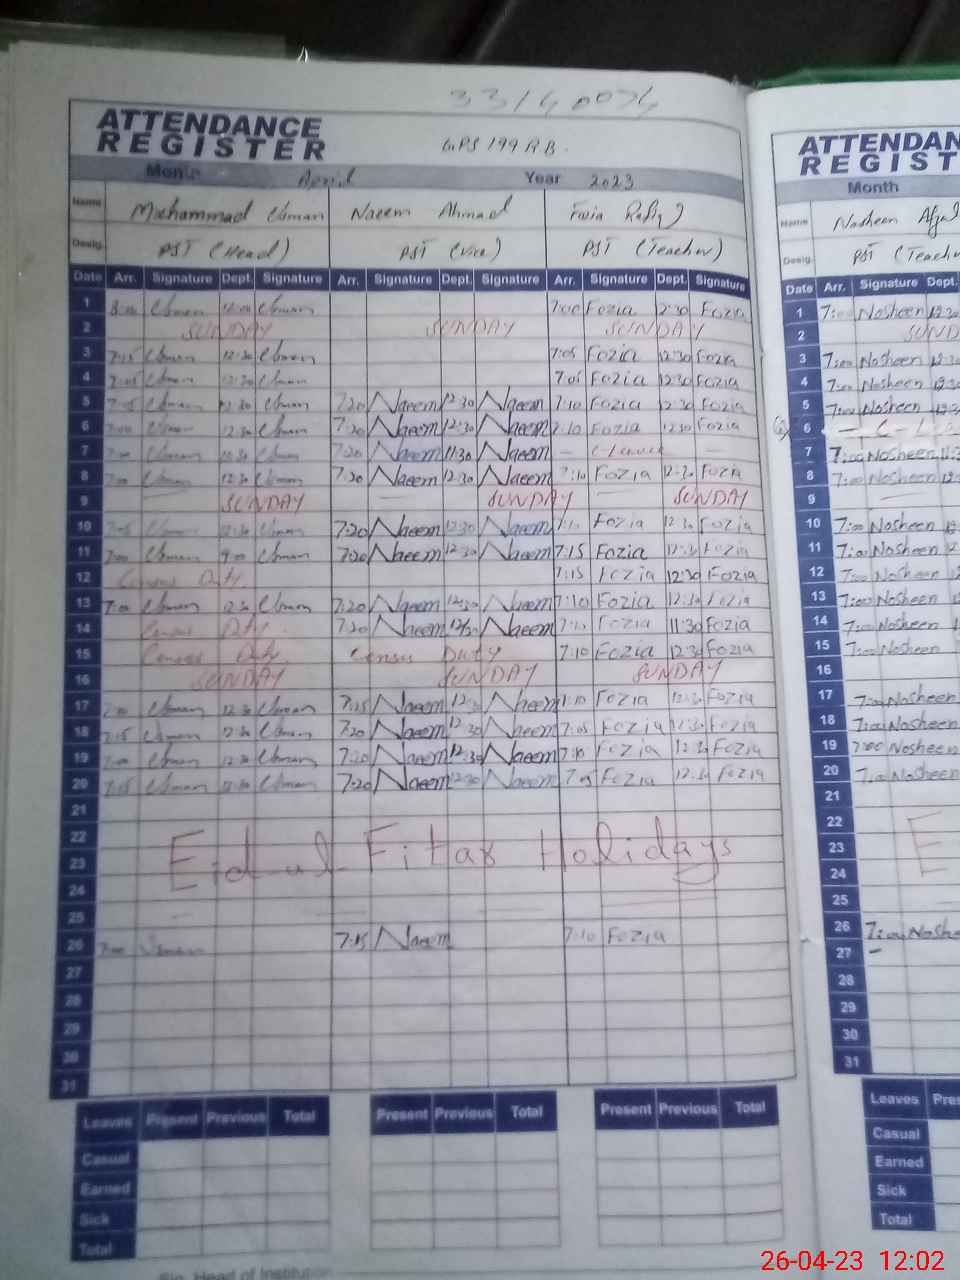 33140074
ATTENDANCE
REGISTER
GPS 199 R.B.
Month April Year 2023
Name Muhammad Usman Naeem Ahmad
Desig. PST (Head) PST (Vice) PST (Teacher)
Date Arr. Signature Dept. Signature Arr. Signature Dept. Signature Arr. Signature Dept. Signature
1 8:00 Usman 12:00 Usman 7:00 Fozia 12:30 Fozia
2 SUNDAY SUNDAY SUNDAY
3 7:15 Usman 12:30 Usman 7:05 Fozia 12:30 Fozia
4 7:05 Usman 12:30 Usman 7:05 Fozia 12:30 Fozia
5 7:05 Usman 12:30 Usman 7:20 Naeem 12:30 Naeem 7:10 Fozia 12:30 Fozia
6 7:00 Usman 12:30 Usman 7:20 Naeem 12:30 Naeem 7:10 Fozia 12:30 Fozia
7 7:00 Usman 10:30 Usman 7:20 Naeem 11:30 Naeem — C-Leave —
8 7:00 Usman 12:30 Usman 7:20 Naeem 12:30 Naeem 7:10 Fozia 12:30 Fozia
9 SUNDAY SUNDAY SUNDAY
10 7:05 Usman 12:30 Usman 7:20 Naeem 12:30 Naeem 7:10 Fozia 12:30 Fozia
11 7:00 Usman 9:00 Usman 7:20 Naeem 12:30 Naeem 7:15 Fozia 12:30 Fozia
12 Census Duty 7:15 Fozia 12:30 Fozia
13 7:00 Usman 12:30 Usman 7:20 Naeem 12:30 Naeem 7:10 Fozia 12:30 Fozia
14 Census Duty 7:20 Naeem 12:30 Naeem 7:10 Fozia 11:30 Fozia
15 Census Duty Census Duty 7:10 Fozia 12:30 Fozia
16 SUNDAY SUNDAY SUNDAY
17 7:00 Usman 12:30 Usman 7:25 Naeem 12:30 Naeem 7:10 Fozia 12:30 Fozia
18 7:15 Usman 12:30 Usman 7:20 Naeem 12:30 Naeem 7:05 Fozia 12:30 Fozia
19 7:00 Usman 12:30 Usman 7:20 Naeem 12:30 Naeem 7:10 Fozia 12:30 Fozia
20 7:15 Usman 12:30 Usman 7:20 Naeem 12:30 Naeem 7:05 Fozia 12:30 Fozia
21
22
23 Eid-ul-Fitar Holidays
24
25
26 7:00 Usman 7:15 Naeem 7:10 Fozia
27
28
29
30
31
Leaves Present Previous Total Present Previous Total Present Previous Total
Casual
Earned
Sick
Total
Sig. Head of Institution
ATTENDAN
REGIST
Month
Name Nosheen Afzal
Desig. PST (Teache
Date Arr. Signature Dept.
1 7:00 Nosheen 12:30
2 SUND
3 7:00 Nosheen 12:30
4 7:00 Nosheen 12:30
5 7:00 Nosheen 12:30
6
7 7:00 Nosheen 11:3
8 7:00 Nosheen 12
9
10 7:00 Nosheen 12
11 7:00 Nosheen
12 7:00 Nosheen
13 7:00 Nosheen
14 7:00 Nosheen
15 7:00 Nosheen
16
17 7:00 Nosheen
18 7:00 Nosheen
19 7:00 Nosheen
20 7:00 Nosheen
21
22
23 E
24
25
26 7:00 Noshe
27
28
29
30
31
Leaves Pres
Casual
Earned
Sick
Total
26-04-23 12:02